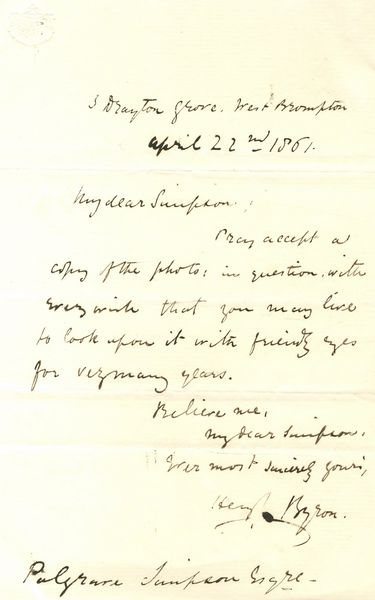 3 Drayton Grove. West Brompton
April 22nd 1861.
My dear Simpson.
Pray accept a
copy of the photo: in question, with
every wish that you may live
to look upon it with friendly eyes
for very many years.
Believe me,
my dear Simpson.
Ever most sincerely yours,
Byron.
Palgrave Simpson Esqre -